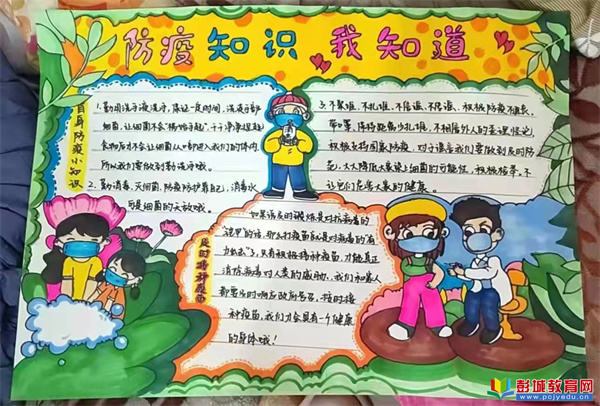 防疫知识 我知道
自身防疫小知识
1.勤用洗手液洗手,保证一定时间,洗液手部
细菌,让细菌不会"
食物后才不会让细菌从口部进入我们的体内
所以我们要做到勤洗手哦。
2.勤消毒,灭细菌,防疫防护靠自己,消毒水
可是细菌的天敌哦。
3.不聚堆,不扎堆,不信谣,不传谣,积极防疫不
带口罩,保持距离少扎堆,不相信外人的歪理怪论,
积极支持国家防疫,对于谣言我们要做到及时防
范,大大降低大家染上细菌的可能性,积极检举,不
让它们危害大家的健康。
及时接种疫苗
如果谣言时被炼身对抗病毒的
"的话,那么打疫苗就是对病毒的"有
力出击"了,只有积极接种疫苗,才能真正
消除病毒对人类的威胁,我们和家人
都要及时响应政府号召,按时接
种疫苗,我们才会具有一个健康
的身体哦!
彭城教育网
www.pcjyedu.cn